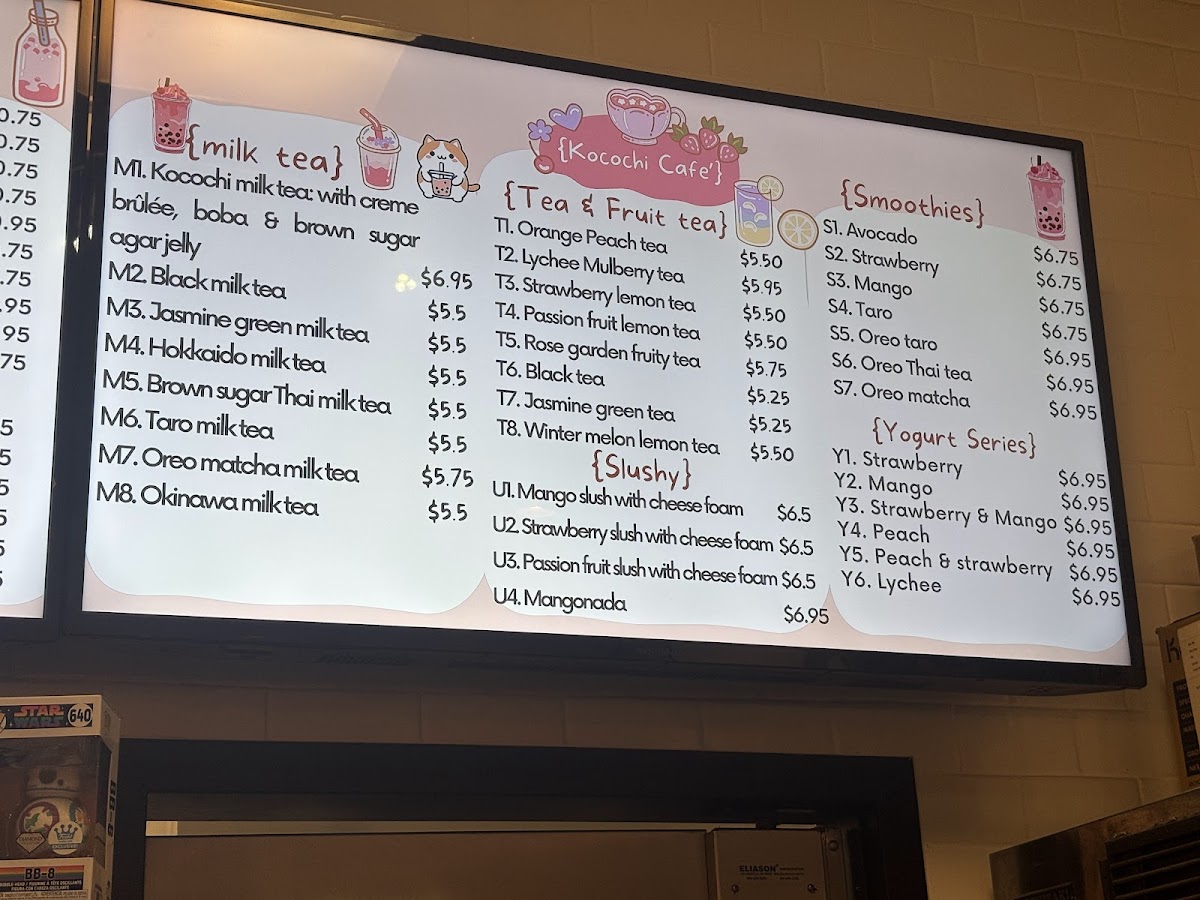 0.75
0.75
0.75
0.75
.95
.75
.75
.95
95
75
5
5
5
5
5
{Kocochi Cafe'}
{milk tea}
M1. Kocochi milk tea: with creme
brûlée, boba & brown sugar
agar jelly $6.95
M2. Black milk tea $5.5
M3. Jasmine green milk tea $5.5
M4. Hokkaido milk tea $5.5
M5. Brown sugar Thai milk tea $5.5
M6. Taro milk tea $5.5
M7. Oreo matcha milk tea $5.75
M8. Okinawa milk tea $5.5
{Tea & Fruit tea}
T1. Orange Peach tea $5.50
T2. Lychee Mulberry tea $5.95
T3. Strawberry lemon tea $5.50
T4. Passion fruit lemon tea $5.50
T5. Rose garden fruity tea $5.75
T6. Black tea $5.25
T7. Jasmine green tea $5.25
T8. Winter melon lemon tea $5.50
{Slushy}
U1. Mango slush with cheese foam $6.5
U2. Strawberry slush with cheese foam $6.5
U3. Passion fruit slush with cheese foam $6.5
U4. Mangonada $6.95
{Smoothies}
S1. Avocado $6.75
S2. Strawberry $6.75
S3. Mango $6.75
S4. Taro $6.75
S5. Oreo taro $6.95
S6. Oreo Thai tea $6.95
S7. Oreo matcha $6.95
{Yogurt Series}
Y1. Strawberry $6.95
Y2. Mango $6.95
Y3. Strawberry & Mango $6.95
Y4. Peach $6.95
Y5. Peach & strawberry $6.95
Y6. Lychee $6.95
STAR
WARS
640
BB-8
BB-8
ELIASON